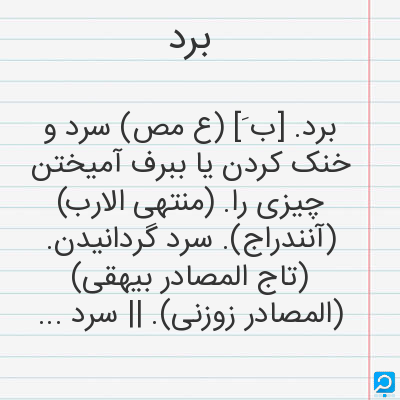 برد
برد. [ب َ] (ع مص) سرد و
خنک کردن یا ببرف آمیختن
چیزی را. (منتهی الارب)
(آنندراج). سرد گردانیدن.
(تاج المصادر بیهقی)
(المصادر زوزنی). || سرد ...